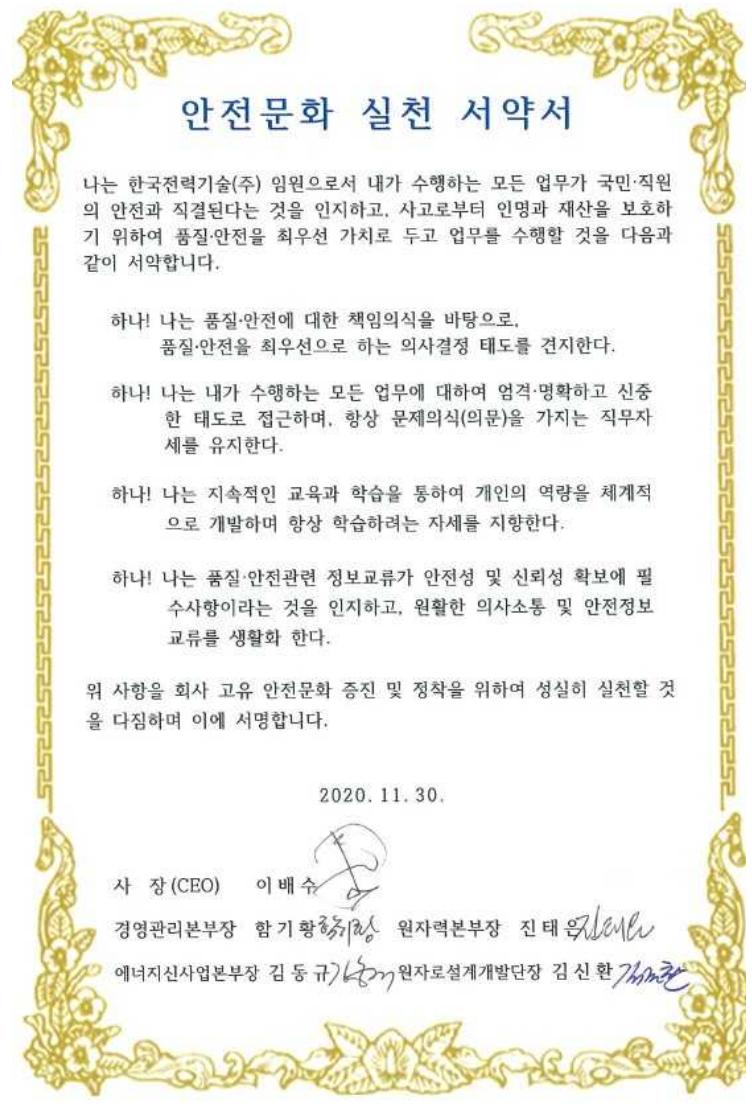 안전문화 실천 서약서
나는 한국전력기술(주) 임원으로서 내가 수행하는 모든 업무가 국민·직원
의 안전과 직결된다는 것을 인지하고, 사고로부터 인명과 재산을 보호하
기 위하여 품질·안전을 최우선 가치로 두고 업무를 수행할 것을 다음과
같이 서약합니다.
하나! 나는 품질·안전에 대한 책임의식을 바탕으로,
품질·안전을 최우선으로 하는 의사결정 태도를 견지한다.
하나! 나는 내가 수행하는 모든 업무에 대하여 엄격·명확하고 신중
한 태도로 접근하며, 항상 문제의식(의문)을 가지는 직무자
세를 유지한다.
하나! 나는 지속적인 교육과 학습을 통하여 개인의 역량을 체계적
으로 개발하며 항상 학습하려는 자세를 지향한다.
하나! 나는 품질·안전관련 정보교류가 안전성 및 신뢰성 확보에 필
수사항이라는 것을 인지하고, 원활한 의사소통 및 안전정보
교류를 생활화 한다.
위 사항을 회사 고유 안전문화 증진 및 정착을 위하여 성실히 실천할 것
을 다짐하며 이에 서명합니다.
2020. 11. 30.
사 장(CEO) 이배수
경영관리본부장 함기황 원자력본부장 진태은
에너지신사업본부장 김동규 원자로설계개발단장 김신환